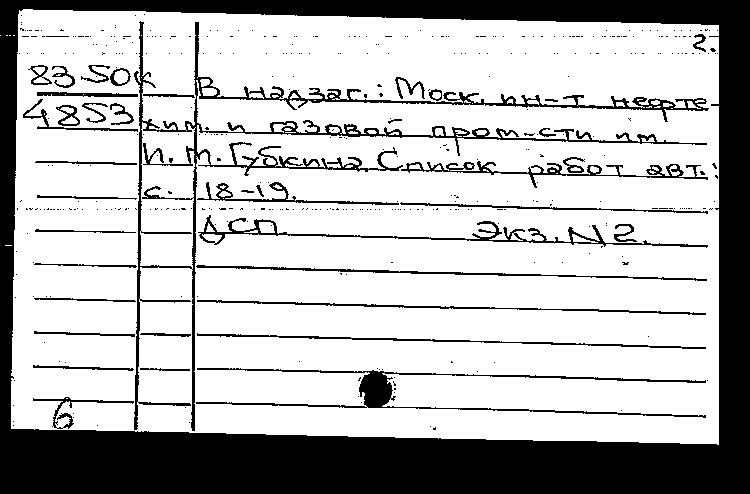 2.
8350к В надзаг.: Моск. ин-т нефте-
4853 хим. и газовой пром-сти им.
И. М. Губкина. Список работ авт.:
с. 18-19.
ДСП Экз. N 2.
6